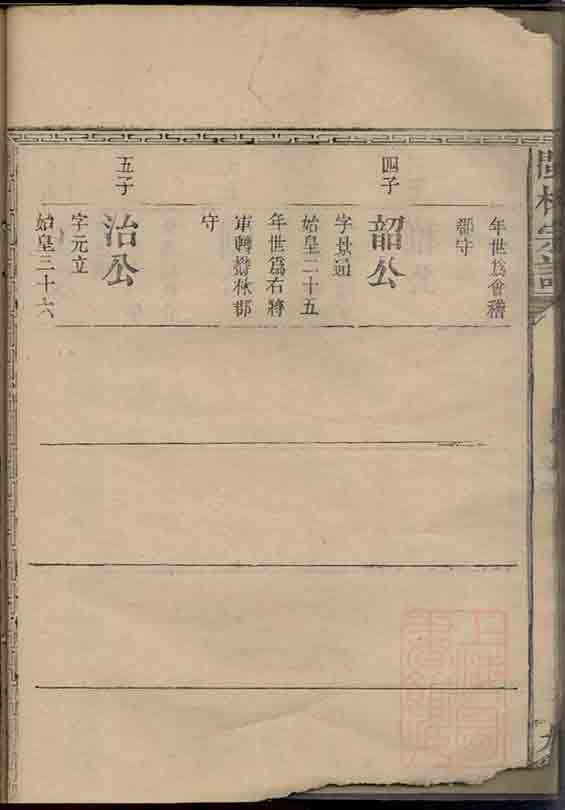 年世爲會稽
郡守
四子
韶公
字景通
始皇二十五
年世爲右將
軍轉鬱林郡
守
五子
治公
字元立
始皇三十六